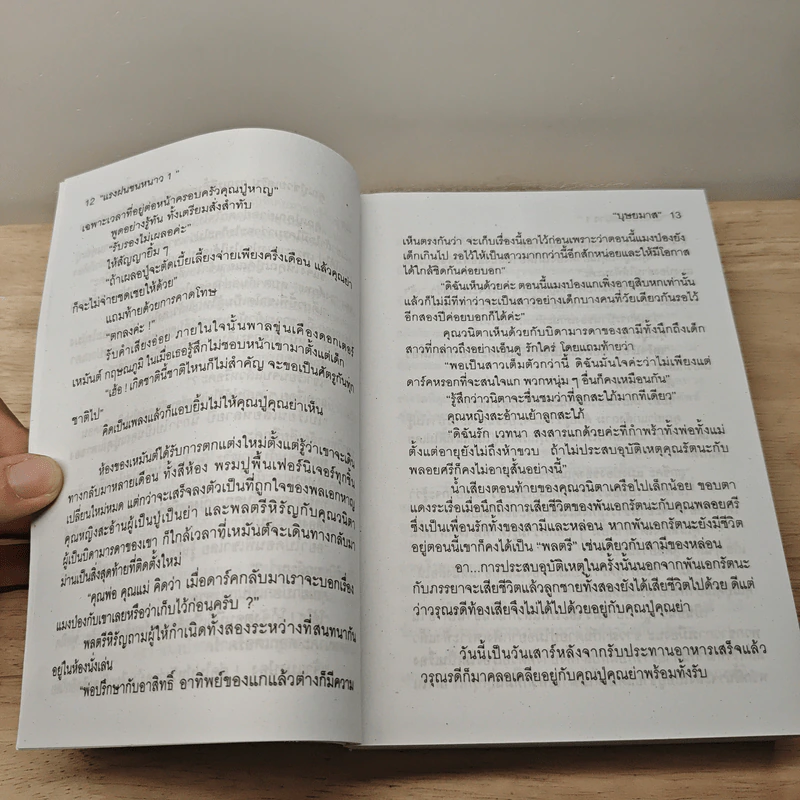 12 "แรงฝนขนหนาว 1"
เฉพาะเวลาที่อยู่ต่อหน้าครอบครัวคุณปู่หาญ"
พูดอย่างรู้ทัน ทั้งเตรียมสั่งสำทับ
"รับรองไม่เผลอค่ะ"
ให้สัญญายิ้ม ๆ
"ถ้าเผลอปู่จะตัดเบี้ยเลี้ยงจ่ายเพียงครึ่งเดือน แล้วคุณย่า
ก็จะไม่จ่ายชดเชยให้ด้วย"
แถมท้ายด้วยการคาดโทษ
"ตกลงค่ะ !"
รับคำเสียงอ่อย ภายในใจนั้นพาลขุ่นเคืองดอกเตอร์
เหมันต์ กฤษณภูมิ ในเมื่อเธอรู้สึกไม่ชอบหน้าเขามาตั้งแต่เด็ก
"เฮ้อ ! เกิดชาตินี้ชาติไหนก็ไม่สำคัญ จะขอเป็นศัตรูกันทุก
ชาติไป"
คิดเป็นเพลงแล้วก็แอบยิ้มไม่ให้คุณปู่คุณย่าเห็น
ห้องของเหมันต์ได้รับการตกแต่งใหม่ตั้งแต่รู้ว่าเขาจะเดิน
ทางกลับมาหลายเดือน ทั้งสีห้อง พรมปูพื้นเฟอร์นิเจอร์ทุกชิ้น
เปลี่ยนใหม่หมด แต่กว่าจะเสร็จลงตัวเป็นที่ถูกใจของพลเอกหาญ
คุณหญิงสะอ้านผู้เป็นปู่เป็นย่า และพลตรีหิรัญกับคุณวนิตา
ผู้เป็นบิดามารดาของเขา ก็ใกล้เวลาที่เหมันต์จะเดินทางกลับมา
ม่านเป็นสิ่งสุดท้ายที่ติดตั้งใหม่
"คุณพ่อ คุณแม่ คิดว่า เมื่อดาร์คกลับมาเราจะบอกเรื่อง
แมงป่องกับเขาเลยหรือว่าเก็บไว้ก่อนครับ ?"
พลตรีหิรัญถามผู้ให้กำเนิดทั้งสองระหว่างที่สนทนากัน
อยู่ในห้องนั่งเล่น
"พ่อปรึกษากับอาสิทธิ์ อาทิพย์ของแกแล้วต่างก็มีความ
"บุษยมาส" 13
เห็นตรงกันว่า จะเก็บเรื่องนี้เอาไว้ก่อนเพราะว่าตอนนี้แมงป่องยัง
เด็กเกินไป รอไว้ให้เป็นสาวมากกว่านี้อีกสักหน่อย และให้มีโอกาส
ได้ใกล้ชิดกันค่อยบอก"
"ดิฉันเห็นด้วยค่ะ ตอนนี้แมงป่องแกเพิ่งอายุสิบหกเท่านั้น
แล้วก็ไม่มีทีท่าว่าจะเป็นสาวอย่างเด็กบางคนที่วัยเดียวกันรอไว้
อีกสองปีค่อยบอกก็ได้ค่ะ"
คุณวนิตาเห็นด้วยกับบิดามารดาของสามีทั้งนึกถึงเด็ก
สาวที่กล่าวถึงอย่างเอ็นดู รักใคร่ โดยแถมท้ายว่า
"พอเป็นสาวเต็มตัวกว่านี้ ดิฉันมั่นใจค่ะว่าไม่เพียงแต่
ดาร์คหรอกที่จะสนใจแก พวกหนุ่ม ๆ อื่นก็คงเหมือนกัน"
"รู้สึกว่าวนิตาจะชื่นชมว่าที่ลูกสะใภ้มากทีเดียว"
คุณหญิงสะอ้านเย้าลูกสะใภ้
"ดิฉันรัก เวทนา สงสารแกด้วยค่ะที่กำพร้าทั้งพ่อทั้งแม่
ตั้งแต่อายุยังไม่ถึงห้าขวบ ถ้าไม่ประสบอุบัติเหตุคุณรัตนะกับ
พลอยศรีก็คงไม่อายุสั้นอย่างนี้"
น้ำเสียงตอนท้ายของคุณวนิตาเครือไปเล็กน้อย ขอบตา
แดงระเรื่อเมื่อนึกถึงการเสียชีวิตของพันเอกรัตนะกับคุณพลอยศรี
ซึ่งเป็นเพื่อนรักทั้งของสามีและหล่อน หากพันเอกรัตนะยังมีชีวิต
อยู่ตอนนี้เขาก็คงได้เป็น "พลตรี" เช่นเดียวกับสามีของหล่อน
อา...การประสบอุบัติเหตุในครั้งนั้นนอกจากพันเอกรัตนะ
กับภรรยาจะเสียชีวิตแล้วลูกชายทั้งสองยังได้เสียชีวิตไปด้วย ดีแต่
ว่าวรุณรดีท้องเสียจึงไม่ได้ไปด้วยอยู่กับคุณปู่คุณย่า
วันนี้เป็นวันเสาร์หลังจากรับประทานอาหารเสร็จแล้ว
วรุณรดีก็มาคลอเคลียอยู่กับคุณปู่คุณย่าพร้อมทั้งรับ